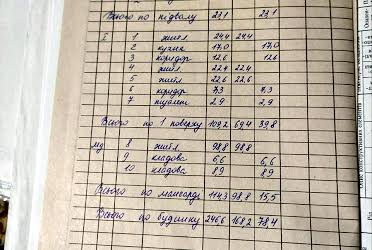 Всього по підвалу 23,1 23,1
I 1 житл. 24,4 24,4
2 кухня 17,0 17,0
3 коридор 12,6 12,6
4 житл. 22,4 22,4
5 житл. 22,6 22,6
6 коридор 7,3 7,3
7 туалет 2,9 2,9
Всього по 1 поверху 109,2 69,4 39,8
мд 8 житл. 98,8 98,8
9 кладова 6,6 6,6
10 кладова 8,9 8,9
Всього по мансарді 114,3 98,8 15,5
Всього по будинку 246,6 168,2 78,4